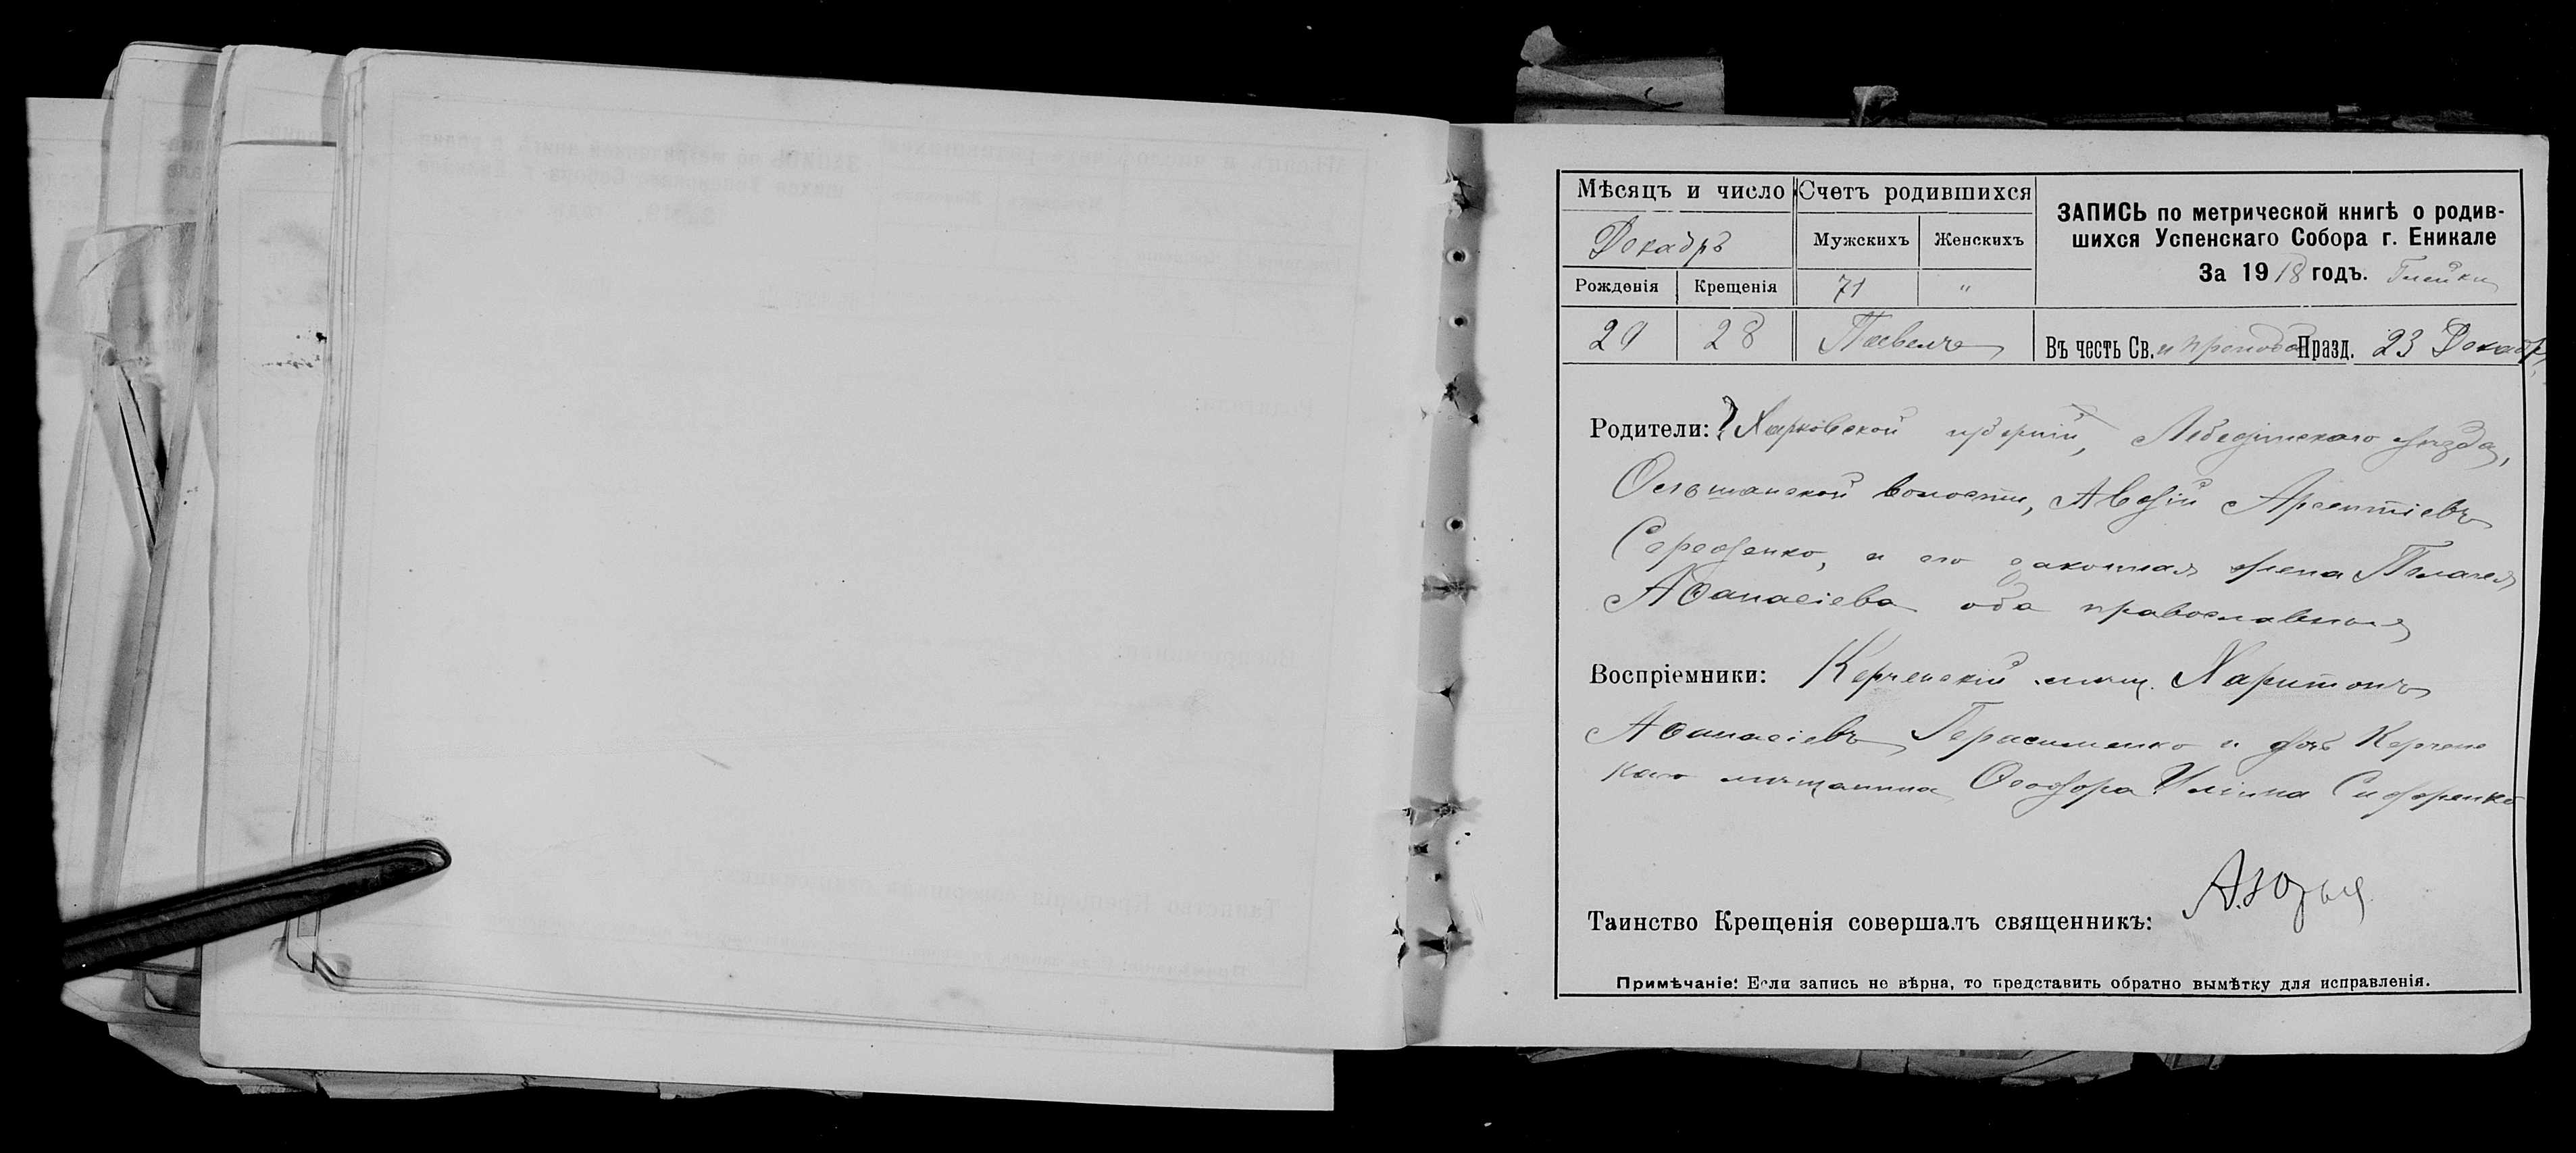 Мѣсяцъ и число Счетъ родившихся
ЗАПИСЬ по метрической книгѣ о родив-
шихся Успенскаго Собора г. Еникале
За 1918 годъ. Глейки
Декабрь
Мужскихъ Женскихъ
Рожденія Крещенія 71 "
29 28 Павелъ Въ честь Св. и преподоб Празд. 23 Декабр.
Родители: Харьковской губерніи, Лебединскаго уѣзда,
волости, Авдій Арсентіевъ
Середенко, и его законная жена Пелагея
Аѳанасіева оба православные
Воспріемники: Керченскій мѣщ. Харитонъ
Аѳанасіевъ Герасименко и дочь Керченс
каго мѣщанина Ѳеодора Сидоренко
Таинство Крещенія совершалъ священникъ:
Примѣчаніе: Если запись не вѣрна, то представить обратно вымѣтку для исправленія.